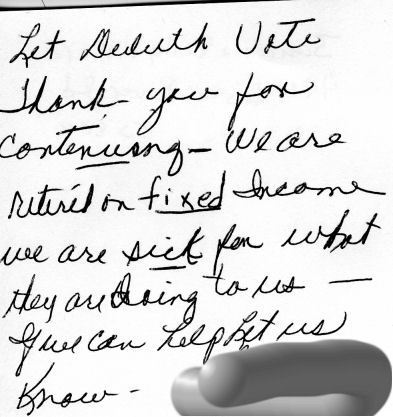 Let Duluth Vote
Thank you for
contenuing - We are
retired on fixed Income
we are sick for what
they are doing to us —
If we can help Let us
Know -